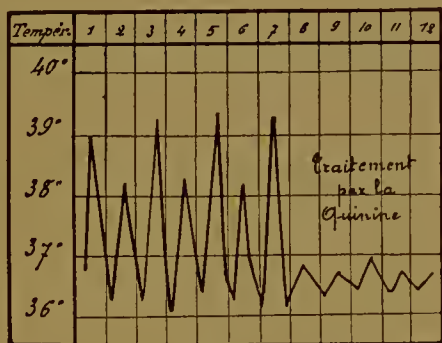 Tempér. 1 2 3 4 5 6 7 8 9 10 11 12
40°
39°
38°
37°
36°
Traitement
par la
Quinine